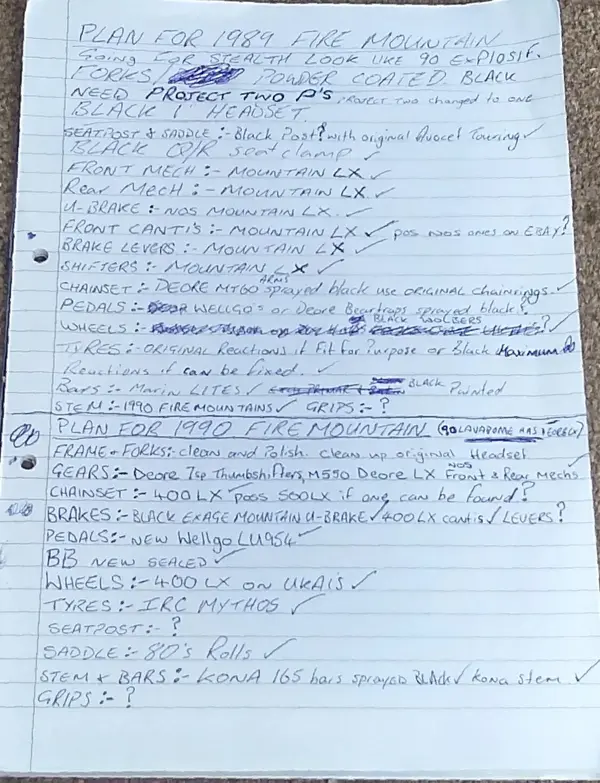 PLAN FOR 1989 FIRE MOUNTAIN
Going FOR STEALTH LOOK LIKE 90 EXPLOSIF.
FORKS/ POWDER COATED BLACK
NEED PROJECT TWO P's, PROJECT TWO changed to one
BLACK 1" HEADSET.
SEATPOST & SADDLE :- Black Post? with original Avocet Touring ✓
BLACK Q/R seat clamp ✓
FRONT MECH :- MOUNTAIN LX ✓
Rear MecH :- MOUNTAIN LX ✓
U-BRAKE :- NOS MOUNTAIN LX. ✓
FRONT CANTI'S :- MOUNTAIN LX ✓ pos NOS ones on EBAY?
BRAKE LEVERS :- MOUNTAIN LX ✓
SHIFTERS :- MOUNTAIN LX ✓
CHAINSET :- DEORE MT60 ARMS sprayed black use ORIGINAL chainrings ✓
PEDALS :- WELLGO's or Deore Beartraps sprayed black?
WHEELS :- BLACK WOLBERS ? ✓
TYRES :- ORIGINAL Reactions if Fit for Purpose or Black Maximum
Reactions if can be fixed. ✓
Bars :- Marin LITES ✓ BLACK Painted
STEM :- 1990 FIRE MOUNTAINS ✓ GRIPS :- ?
PLAN FOR 1990 FIRE MOUNTAIN (90 LAVADOME HAS DEORELX)
FRAME & FORKS: clean and Polish. clean up original Headset ✓
GEARS :- Deore 7sp Thumbshifters, M550 Deore LX NOS Front & Rear Mechs
CHAINSET :- 400 LX poss 500LX if one can be found?
BRAKES :- BLACK EXAGE MOUNTAIN U-BRAKE ✓ 400 LX cantis ✓ LEVERS?
PEDALS :- NEW Wellgo LU954 ✓
BB NEW SEALED ✓
WHEELS :- 400 LX ON UKAIS ✓
TYRES :- IRC MYTHOS ✓
SEATPOST :- ?
SADDLE :- 80's Rolls ✓
STEM & BARS :- KONA 165 bars sprayed BLACK ✓ kona stem ✓
GRIPS :- ?